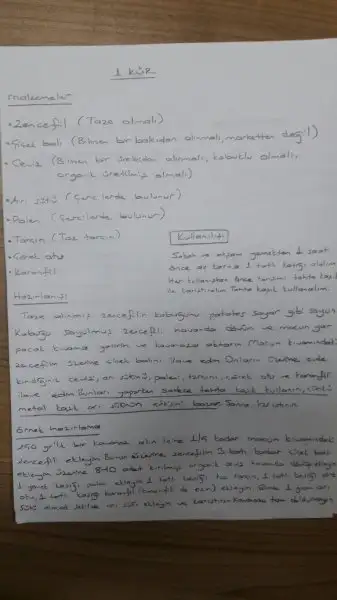 1 KÜR
Malzemeler
• Zencefil (Taze olmalı)
• Çiçek balı (Bilinen bir balcıdan alınmalı, marketten değil)
• Ceviz (Bilinen bir üreticiden alınmalı, kabuklu olmalı,
organik üretilmiş olmalı)
• Arı sütü (Çerçilerde bulunur)
• Polen (Çerçilerde bulunur)
• Tarçın (Toz tarçın)
• Çörek otu
• Karanfil
Kullanılışı
Sabah ve akşam yemekten saat
önce aç karna 1 tatlı kaşığı alalım
Her kullanıştan önce tamamı tahta kaşık
ile karıştıralım. Tahta kaşık kullanalım.
Hazırlanışı
Taze aldığımız zencefilin kabuğunu patates soyar gibi soyun
Kabuğu soyulmuş zencefili havanda dövün ve macun gibi
kıvama getirin ve kavanoza aktarın. Macun kıvamındaki
zencefilin üzerine çiçek balını ilave edin. Onların üzerine evde
kırdığınız ceviz, arı sütünü, polen, tarçını, çörek otu ve karanfil
ilave edin. Bunları yaparken sadece tahta kaşık kullanın, çünkü
metal kaşık arı sütünün etkisini bozar. Sonra karıştırın.
Örnek hazırlama
250 gr'lık bir kavanoz alın. İçine 1/3 kadar macun kıvamındaki
zencefil ekleyin. Bunun üzerine zencefilin 3 katı kadar çiçek balı
ekleyin. Üzerine 8-10 adet kırılmış organik ceviz ekleyin
1 yemek kaşığı polen ekleyin. 1 tatlı kaşığı toz tarçın, 1 tatlı kaşığı çörek
otu, 1 tatlı kaşığı karanfil (karanfili de ezin) ekleyin. 1 gram arı
sütü olacak şekilde arı sütü ekleyin ve karıştırın. Kavanozu tam doldurmayın